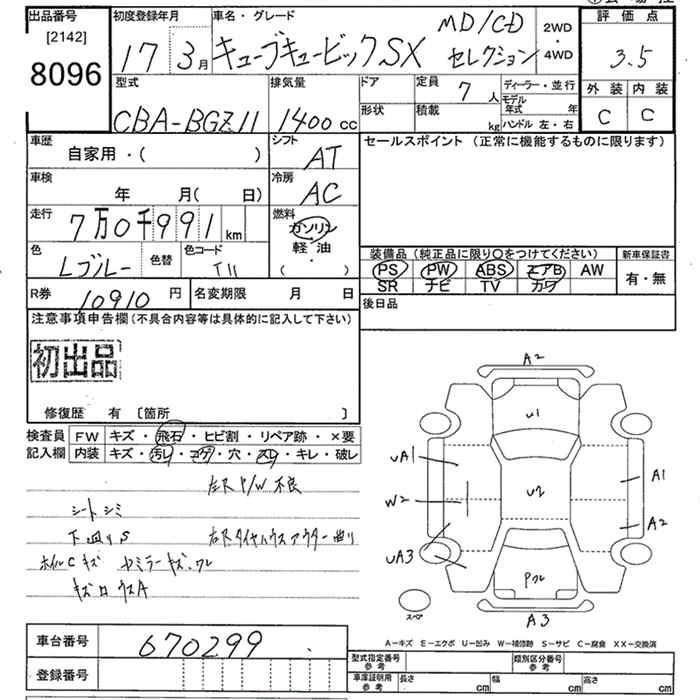 出品番号 [2142] 8096
初度登録年月 17 3月
車名・グレード キューブキュービックSX MD/CD セレクション
2WD・4WD
評価点 3.5
外装 C 内装 C
型式 CBA-BGZ11
排気量 1400cc
ドア
形状
定員 7人
積載 kg
ディーラー・並行
モデル年式 年
ハンドル 左・右
車歴 自家用・( )
シフト AT
セールスポイント(正常に機能するものに限ります)
車検 年 月( 日)
冷房 AC
走行 7万0千991km
燃料 ガソリン 軽・油 ( )
色 Lブルー 色替 色コード
装備品(純正品に限り○をつけてください)
PS PW ABS エアB AW
SR ナビ TV カワ
新車保証書 有・無
R券 10910円 名変期限 月 日
後日品
注意事項申告欄(不具合内容等は具体的に記入して下さい)
初出品
修復歴 有 〔箇所 〕
検査員記入欄
FW キズ・飛石・ヒビ割・リペア跡・×要
内装 キズ・汚レ・コゲ・穴・スレ・キレ・破レ
左R P/W 不良
シートシミ
下廻りS
ホイルCキズ
A2
U1
UA1
U2
W2
A1
A2
UA3
Pワレ
A3
スペア
A-キズ E-エクボ U-凹み W-補修跡 S-サビ C-腐食 XX-交換済
車台番号 670299
登録番号
型式指定番号参考 類別区分番号参考
車庫証明用参考 長さ cm 幅 cm 高さ cm